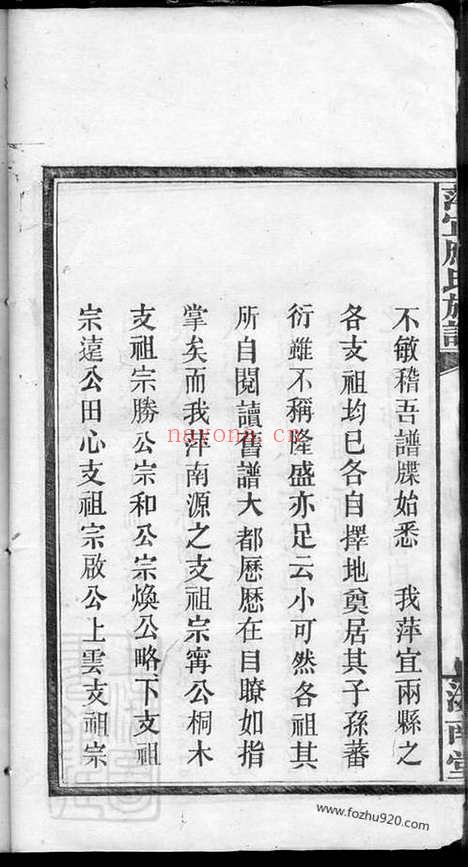 不敏稽吾譜牒始悉　我萍宜兩縣之
各支祖均已各自擇地奠居其子孫蕃
衍雖不稱隆盛亦足云小可然各祖其
所自閱讀舊譜大都歷歷在目瞭如指
掌矣而我萍南源之支祖宗寗公桐木
支祖宗勝公宗和公宗煥公略下支祖
宗遠公田心支祖宗啟公上雲支祖宗
nayona.cn
www.fozhu920.com